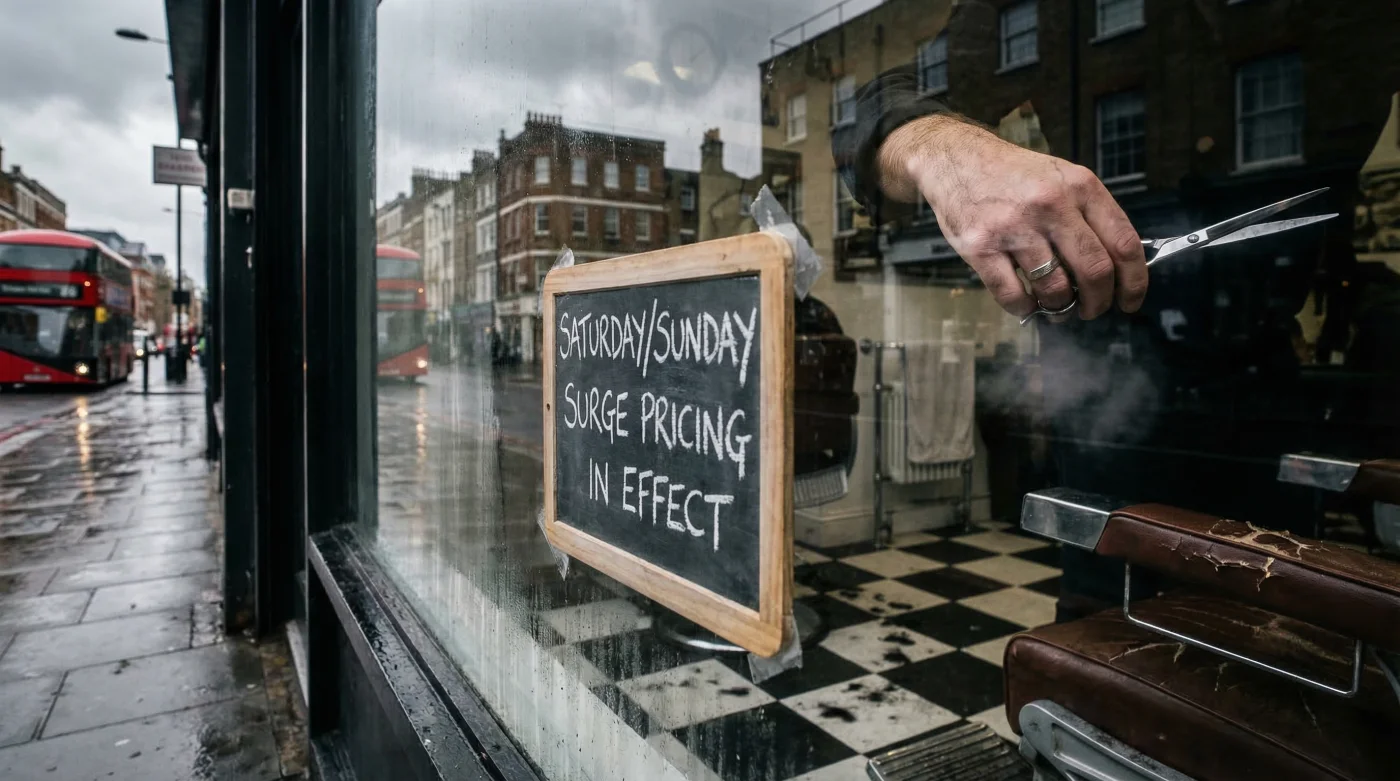 SATURDAY/SUNDAY
SURGE PRICING
IN EFFECT